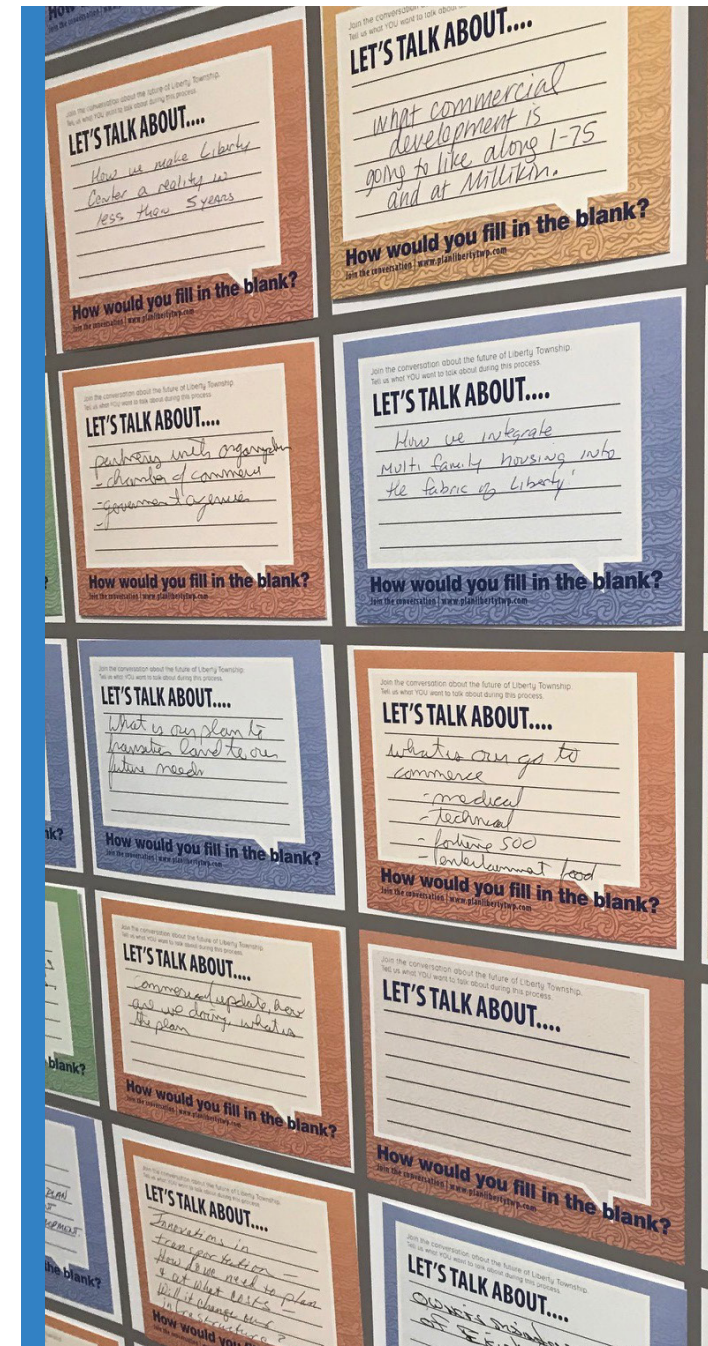 How
Join the
Join the conversation about the future of Liberty Township.
Tell us what YOU want to talk about during this process.
LET'S TALK ABOUT....
How we make Liberty
Center a reality in
less than 5 years
How would you fill in the blank?
Join the conversation | www.planlibertytwp.com
Join the conversation
Tell us what YOU want to talk about
LET'S TALK ABOUT....
what commercial
development is
going to like along I-75
and at Millikin.
How would you fill in the blank?
Join the conversation | www.planlibertytwp.com
Join the conversation about the future of Liberty Township.
Tell us what YOU want to talk about during this process.
LET'S TALK ABOUT....
partners with
- chamber of commerce
- government agencies
-
How would you fill in the blank?
Join the conversation | www.planlibertytwp.com
Join the conversation about the future of Liberty Township.
Tell us what YOU want to talk about during this process.
LET'S TALK ABOUT....
How we integrate
multi family housing into
the fabric of Liberty!
How would you fill in the blank?
Join the conversation | www.planlibertytwp.com
?
Join the conversation about the future of Liberty Township.
Tell us what YOU want to talk about during this process.
LET'S TALK ABOUT....
What is our plan to
transition land to our
future needs
How would you fill in the blank?
Join the conversation | www.planlibertytwp.com
nk?
Join the conversation about the future of Liberty Township.
Tell us what YOU want to talk about during this process.
LET'S TALK ABOUT....
what is our go to
commerce
- medical
- technical
- fortune 500
- entertainment food
How would you fill in the blank?
Join the conversation | www.planlibertytwp.com
Join the conversation about the future of Liberty Township.
Tell us what YOU want to talk about during this process.
LET'S TALK ABOUT....
Commercial update, how
are we doing, what is
the plan
How would you fill in the blank?
Join the conversation | www.planlibertytwp.com
blank?
Join the conversation about the future of Liberty Township.
Tell us what YOU want to talk about during this process.
LET'S TALK ABOUT....
How would you fill in the blank?
Join the conversation | www.planlibertytwp.com
PLAN
he blank?
Join the conversation about the future of Liberty Township.
Tell us what YOU want to talk about during this process.
LET'S TALK ABOUT....
Innovations in
transportation -
How do we need to plan
& at what costs -
Will it change our
infrastructure?
How would you fill in the
Join the conversation about the future of Liberty Township.
Tell us what YOU want to talk about during this process.
LET'S TALK ABOUT....
of